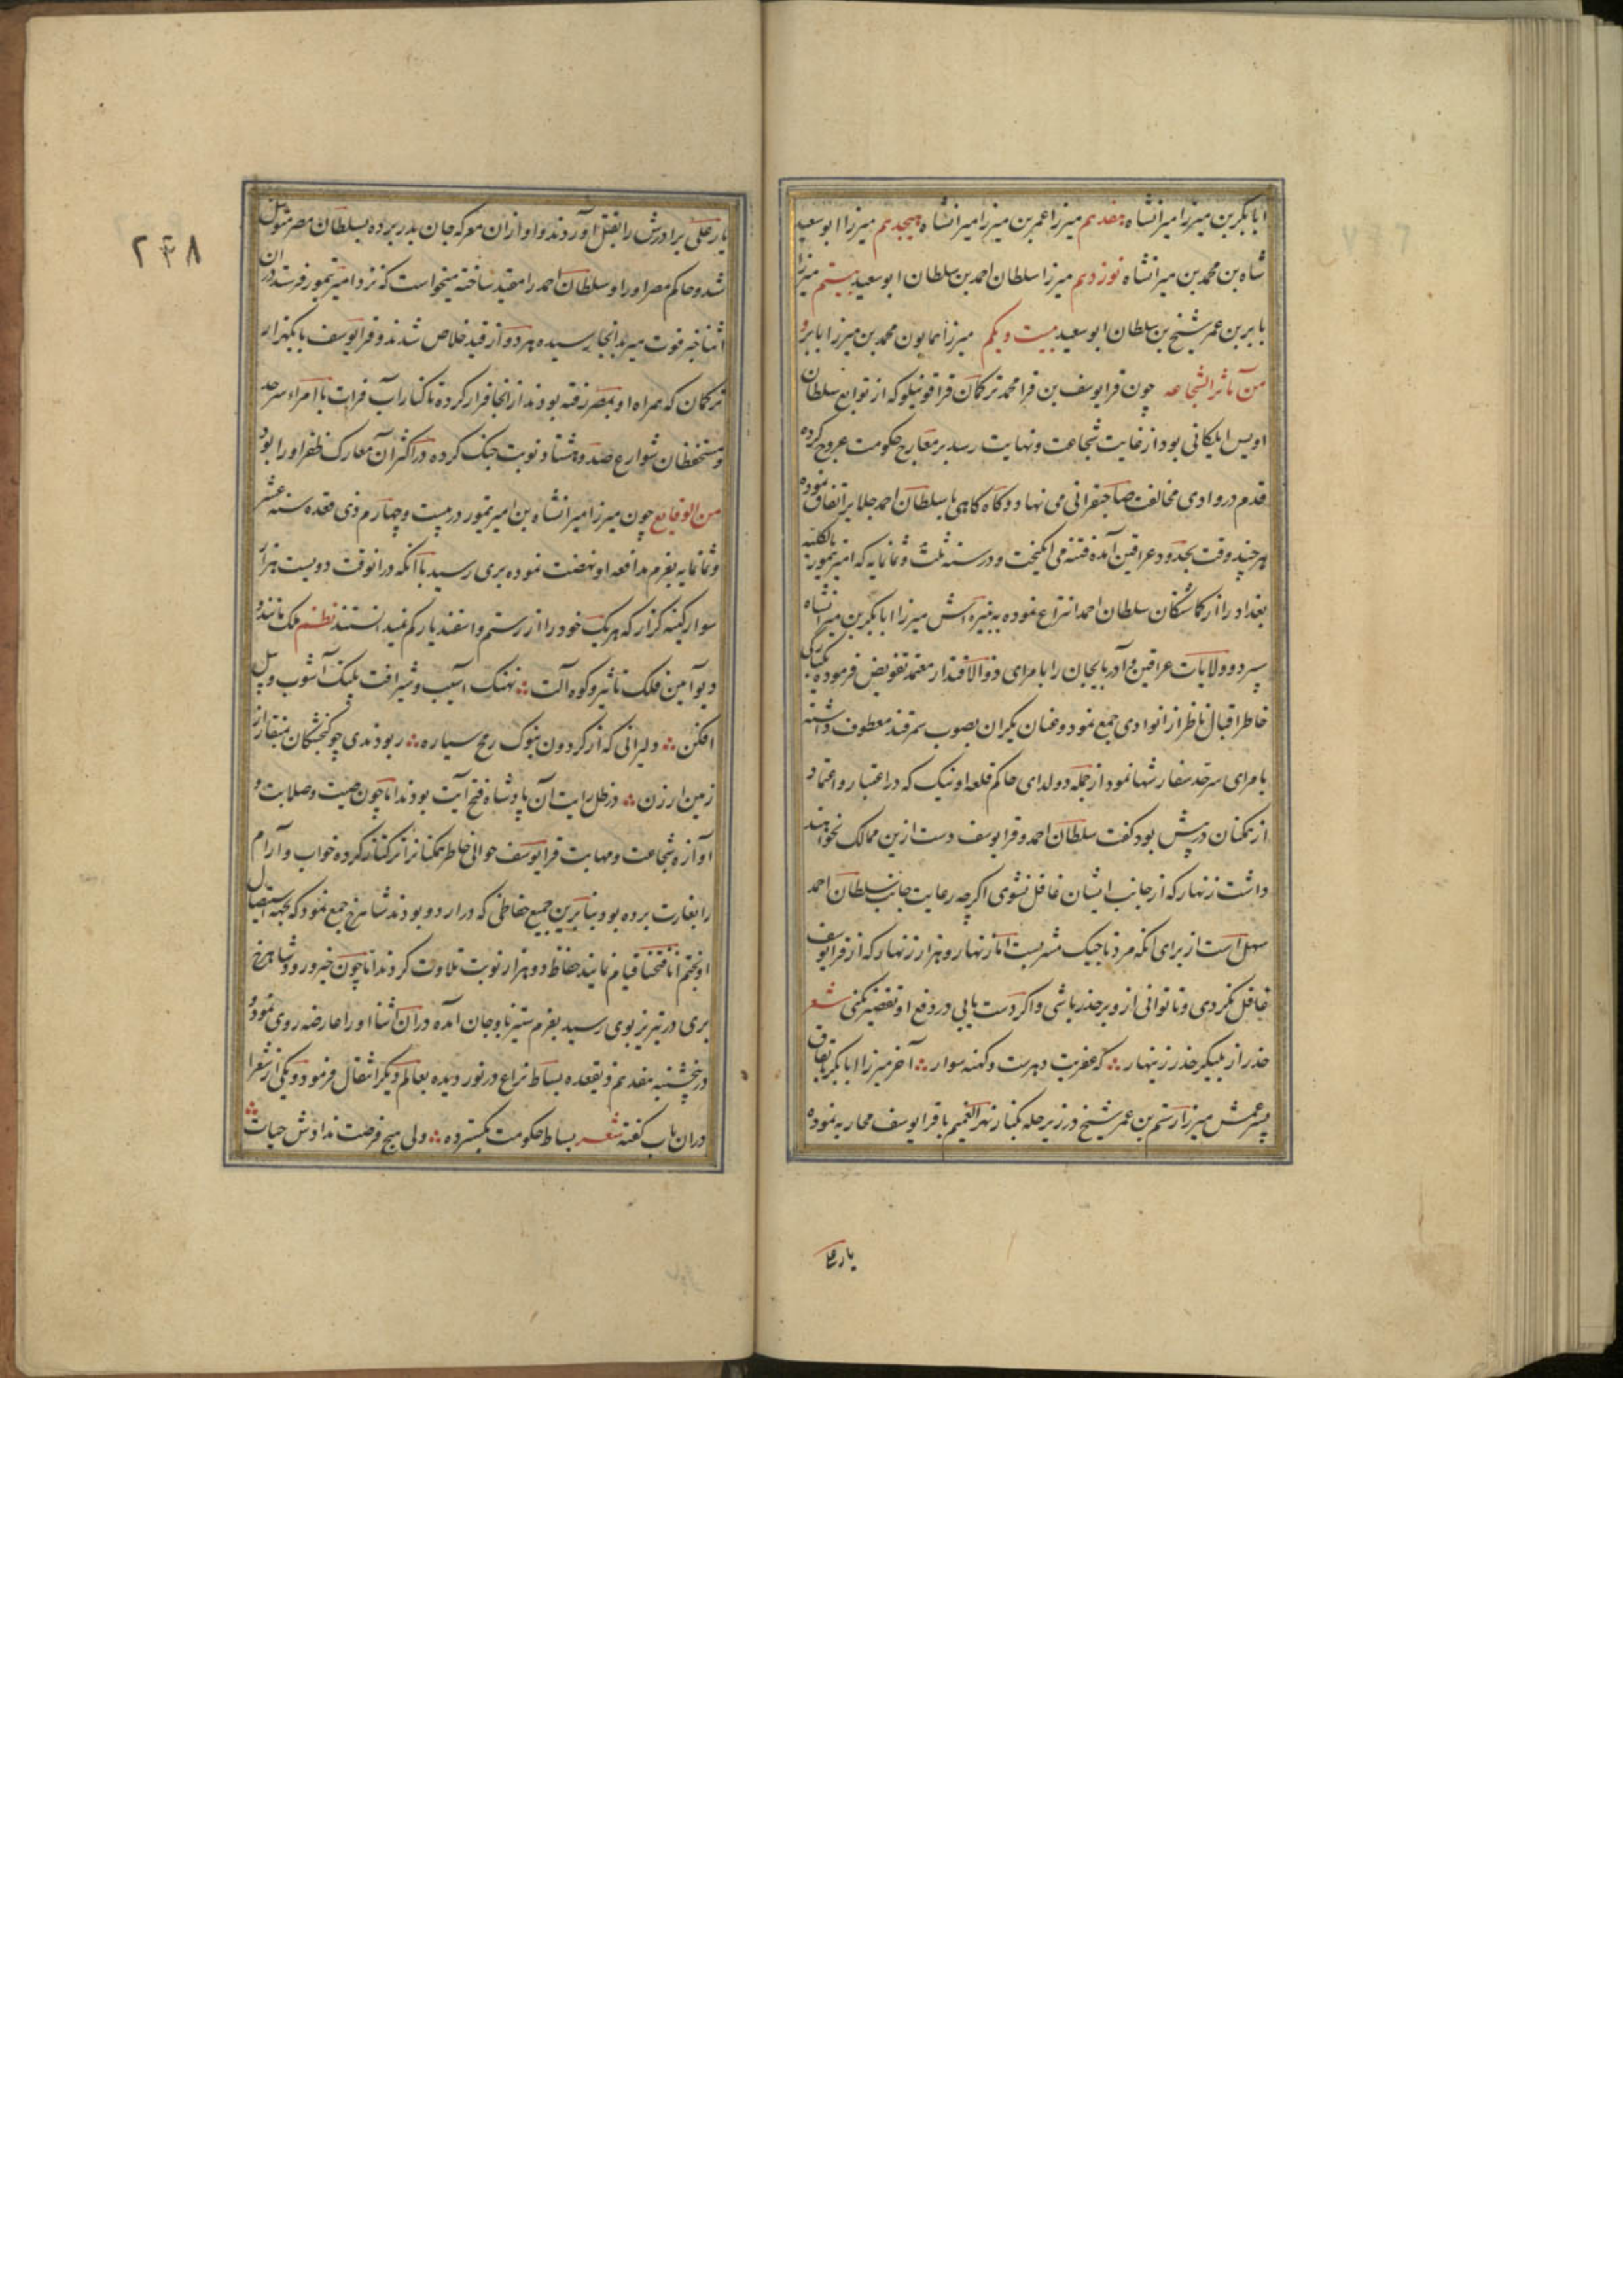 ابابکر بن میرزا میرانشاه هفدهم میرزا عمر بن میرزا میرانشاه هیجدهم میرزا ابوسعید
شاه بن محمد بن میرانشاه نوزدهم میرزا سلطان احمد بن سلطان ابوسعید بیستم میرزا
بابر بن عمر شیخ بن سلطان ابوسعید بیست و یکم میرزا همایون محمد بن میرزا بابر و
من مآثر الشجاعه چون قرا یوسف بن قرا محمد ترکمان قراقوینلو که از توابع سلطان
اویس ایلکانی بود از غایت شجاعت و نهایت رسد بر معارج حکومت عروج کرده
قدم در وادی مخالفت صاحبقرانی می نهاد و گاه گاهی با سلطان احمد جلایر اتفاق نموده
هر چند وقت بحدود عراقین آمده فتنه می انکیخت و در سنه ثلث و ثمانمایه که امیر تیمور بالکلیه
بغداد را از کماشتکان سلطان احمد انتزاع نموده به نبیره اش میرزا ابابکر بن میرانشاه
سپرد و ولایات عراقین و آذربایجان را بامرای ذوالاقتدار معتمد تفویض فرموده بیکبارکی
خاطر اقبال ناظر از انوادی جمع نمود و عنان یکران بصوب سمرقند معطوف داشته
بامرای سرحد سفارشها نمود از جمله دولدای حاکم قلعه اونیک که در اعتبار و اعتماد
از همکنان در پیش بود کفت سلطان احمد و قرا یوسف دست ازین ممالک نخواهند
داشت زنهار که از جانب ایشان غافل نشوی اکرچه رعایت جانب سلطان احمد
سهل است از برای انکه مرد تاجیک مشربست اما زنهار و هزار زنهار که از قرا یوسف
غافل نکردی و تا توانی از و بر حذر باشی و اکر دست یابی در دفع او تقصیر نکنی شعر
حذر از بلیکر حذر زینهار که عفریت دهرست و کهنه سوار آخر میرزا ابابکر باتفاق
پسر عمش میرزا رستم بن عمر شیخ در زیر حله بکنار نهر الغنیم با قرا یوسف محاربه نموده
یار علی
۲۴۸
یار علی برادرش را بقتل آوردند و او ازان معرکه جان بدر برده بسلطان مصر متوسل
شد و حاکم مصر او را و سلطان احمد را مقید ساخته میخواست که نزد امیر تیمور فرستد دران
اثنا خبر فوت میر بدانجا رسیده هر دو از قید خلاص شدند و قرا یوسف با یکهزار
ترکمان که همراه او بمصر رفته بودند از انجا فرار کرده تا کنار آب فرات با امراء سرحد
و مستحفظان شوارع صد و هشتاد نوبت جنک کرده در اکثر آن معارک ظفر او را بود
من الوقایع چون میرزا میرانشاه بن امیر تیمور در بیست و چهارم ذی قعده سنه عشر
و ثمانمایه بعزم مدافعه او نهضت نموده بری رسید با آنکه در انوقت دویست هزار
سوار کینه کزار که هر یک خود را از رستم و اسفندیار کم نمیدانستند نظم ملک مانند و
دیو آمین فلک تاثیر و کوه آلت نهنک آسیب و شیر آفت پلنک آشوب و پیل
افکن دلیرانی که از کردون بنوک رمح سیاره ربودندی چو کنجشکان بمنقار از
زمین ارزن در ظل رایت آن پادشاه فتح آیت بودند اما چون صیت و صلابت و
آوازه شجاعت و مهابت قرا یوسف حوالی خاطر همکنانرا ترکتاز کرده خواب و آرام
را بغارت برده بود بنابرین جمیع حفاظی که در اردو بودند شاهرخ جمع نمود که بجهة استیصال
او بختم انا فتحنا قیام نمایند حفاظ دو هزار نوبت تلاوت کردند اما چون خبر ورود شاهرخ
بری در تبریز بوی رسید بعزم ستیز باوجان آمده دران اثنا او را عارضه روی نمود و
در پنجشنبه هفدهم ذیقعده بساط نزاع در نوردیده بعالم دیکر انتقال فرمود و یکی از شعرا
دران باب کفته شعر بساط حکومت بکسترده ولی هیچ فرصت ندادش حیات